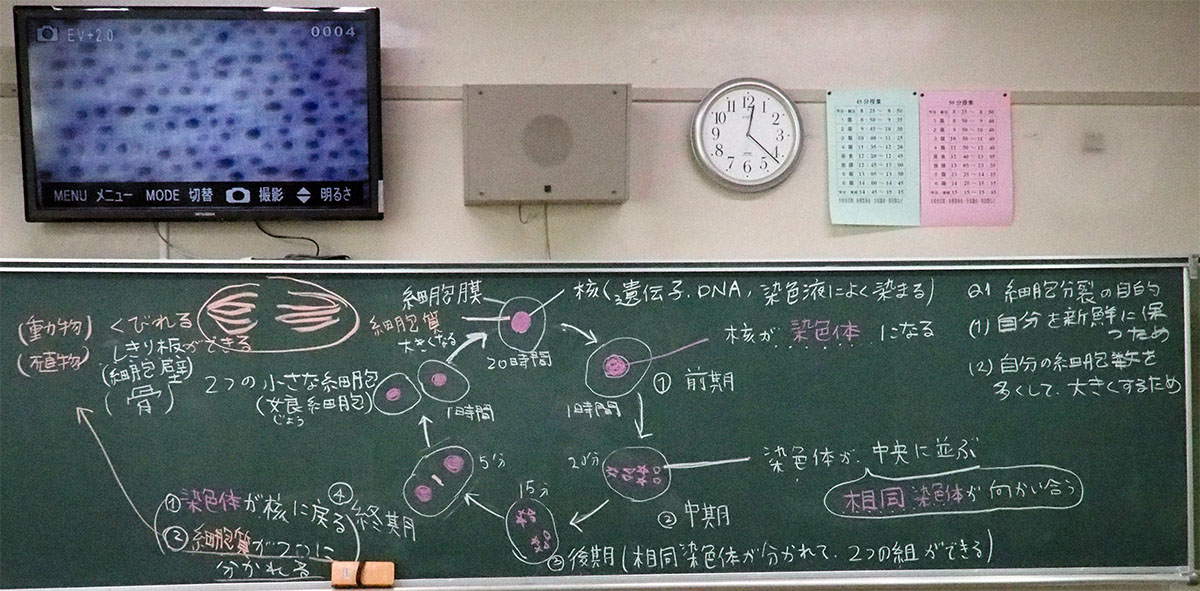 EV+2.0
0004
MENU メニュー MODE 切替 撮影 明るさ
45分授業
50分授業
12
1
2
3
4
5
6
7
8
9
10
11
(動物) くびれる
(植物) しきり板ができる
(細胞壁)
(骨)
細胞膜
細胞質
大きくなる
核(遺伝子、DNA, 染色液によく染まる)
20時間
核が染色体になる
① 前期
1時間
20分
染色体が、中央に並ぶ
相同染色体が向かい合う
② 中期
15分
③後期(相同染色体が分かれて、2つの組ができる)
5分
④終期
①染色体が核に戻る
②細胞質が2つに
分かれる
1時間
2つの小さな細胞
(娘細胞)
じょう
Q1 細胞分裂の目的
(1) 自分を新鮮に保
つため
(2) 自分の細胞数を
多くして、大きくするため